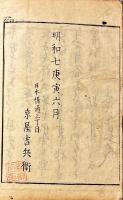 明和七庚寅六月
日本橋通三丁目
京屋吉兵衛